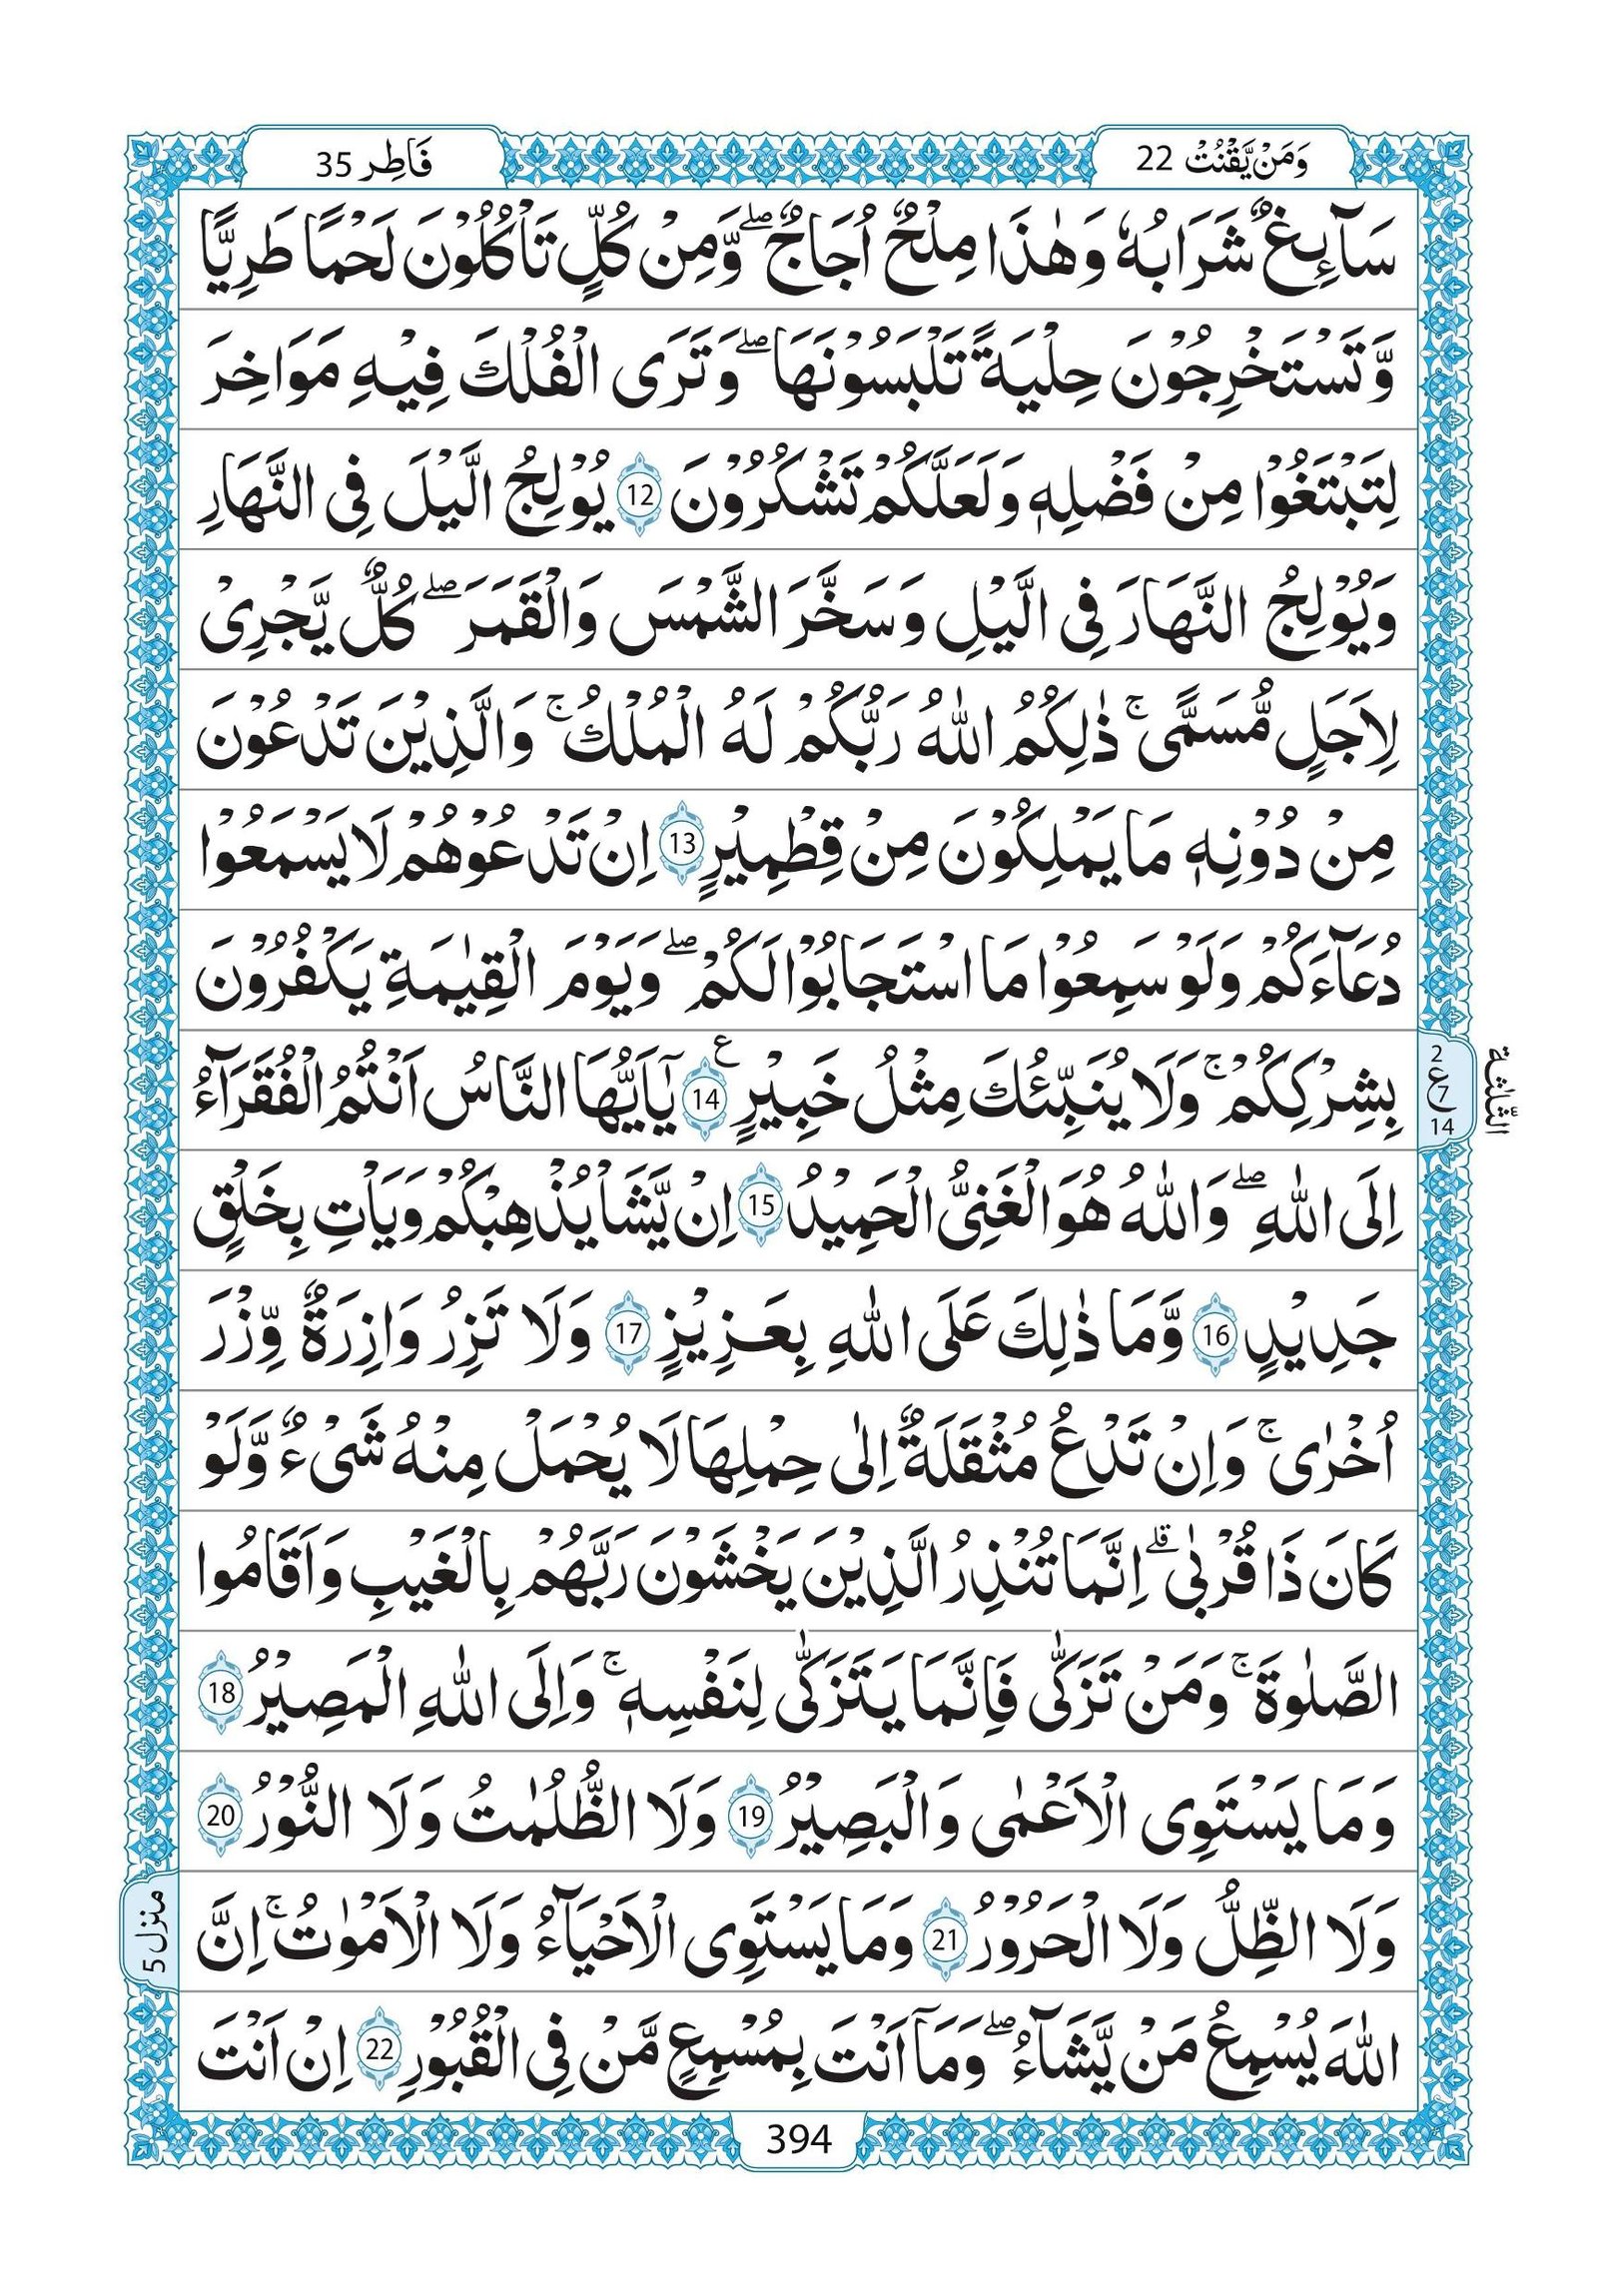 وَمَنْ يَّقْنُتْ 22
فَاطِر 35
سَآئِغٌ شَرَابُهٗ وَهٰذَا مِلْحٌ اُجَاجٌ ۖ وَّمِنْ كُلٍّ تَاْكُلُوْنَ لَحْمًا طَرِيًّا
وَّتَسْتَخْرِجُوْنَ حِلْيَةً تَلْبَسُوْنَهَا ۖ وَتَرَى الْفُلْكَ فِيْهِ مَوَاخِرَ
لِتَبْتَغُوْا مِنْ فَضْلِهٖ وَلَعَلَّكُمْ تَشْكُرُوْنَ 12 يُوْلِجُ الَّيْلَ فِى النَّهَارِ
وَيُوْلِجُ النَّهَارَ فِى الَّيْلِ وَسَخَّرَ الشَّمْسَ وَالْقَمَرَ ۖ كُلٌّ يَّجْرِىْ
لِاَجَلٍ مُّسَمًّى ۚ ذٰلِكُمُ اللّٰهُ رَبُّكُمْ لَهُ الْمُلْكُ ۚ وَالَّذِيْنَ تَدْعُوْنَ
مِنْ دُوْنِهٖ مَا يَمْلِكُوْنَ مِنْ قِطْمِيْرٍ 13 اِنْ تَدْعُوْهُمْ لَا يَسْمَعُوْا
دُعَآءَكُمْ وَلَوْ سَمِعُوْا مَا اسْتَجَابُوْا لَكُمْ ۖ وَيَوْمَ الْقِيٰمَةِ يَكْفُرُوْنَ
بِشِرْكِكُمْ ۚ وَلَا يُنَبِّئُكَ مِثْلُ خَبِيْرٍ 14 ع يٰٓاَيُّهَا النَّاسُ اَنْتُمُ الْفُقَرَآءُ
2
ع 7
14
الثلثة
اِلَى اللّٰهِ ۖ وَاللّٰهُ هُوَ الْغَنِىُّ الْحَمِيْدُ 15 اِنْ يَّشَاْ يُذْهِبْكُمْ وَيَاْتِ بِخَلْقٍ
جَدِيْدٍ 16 وَّمَا ذٰلِكَ عَلَى اللّٰهِ بِعَزِيْزٍ 17 وَلَا تَزِرُ وَازِرَةٌ وِّزْرَ
اُخْرٰى ۚ وَاِنْ تَدْعُ مُثْقَلَةٌ اِلٰى حِمْلِهَا لَا يُحْمَلْ مِنْهُ شَىْءٌ وَّلَوْ
كَانَ ذَا قُرْبٰى ۗ اِنَّمَا تُنْذِرُ الَّذِيْنَ يَخْشَوْنَ رَبَّهُمْ بِالْغَيْبِ وَاَقَامُوا
الصَّلٰوةَ ۚ وَمَنْ تَزَكّٰى فَاِنَّمَا يَتَزَكّٰى لِنَفْسِهٖ ۚ وَاِلَى اللّٰهِ الْمَصِيْرُ 18
وَمَا يَسْتَوِى الْاَعْمٰى وَالْبَصِيْرُ 19 وَلَا الظُّلُمٰتُ وَلَا النُّوْرُ 20
وَلَا الظِّلُّ وَلَا الْحَرُوْرُ 21 وَمَا يَسْتَوِى الْاَحْيَآءُ وَلَا الْاَمْوٰتُ ۚ اِنَّ
منزل 5
اللّٰهَ يُسْمِعُ مَنْ يَّشَآءُ ۖ وَمَآ اَنْتَ بِمُسْمِعٍ مَّنْ فِى الْقُبُوْرِ 22 اِنْ اَنْتَ
394